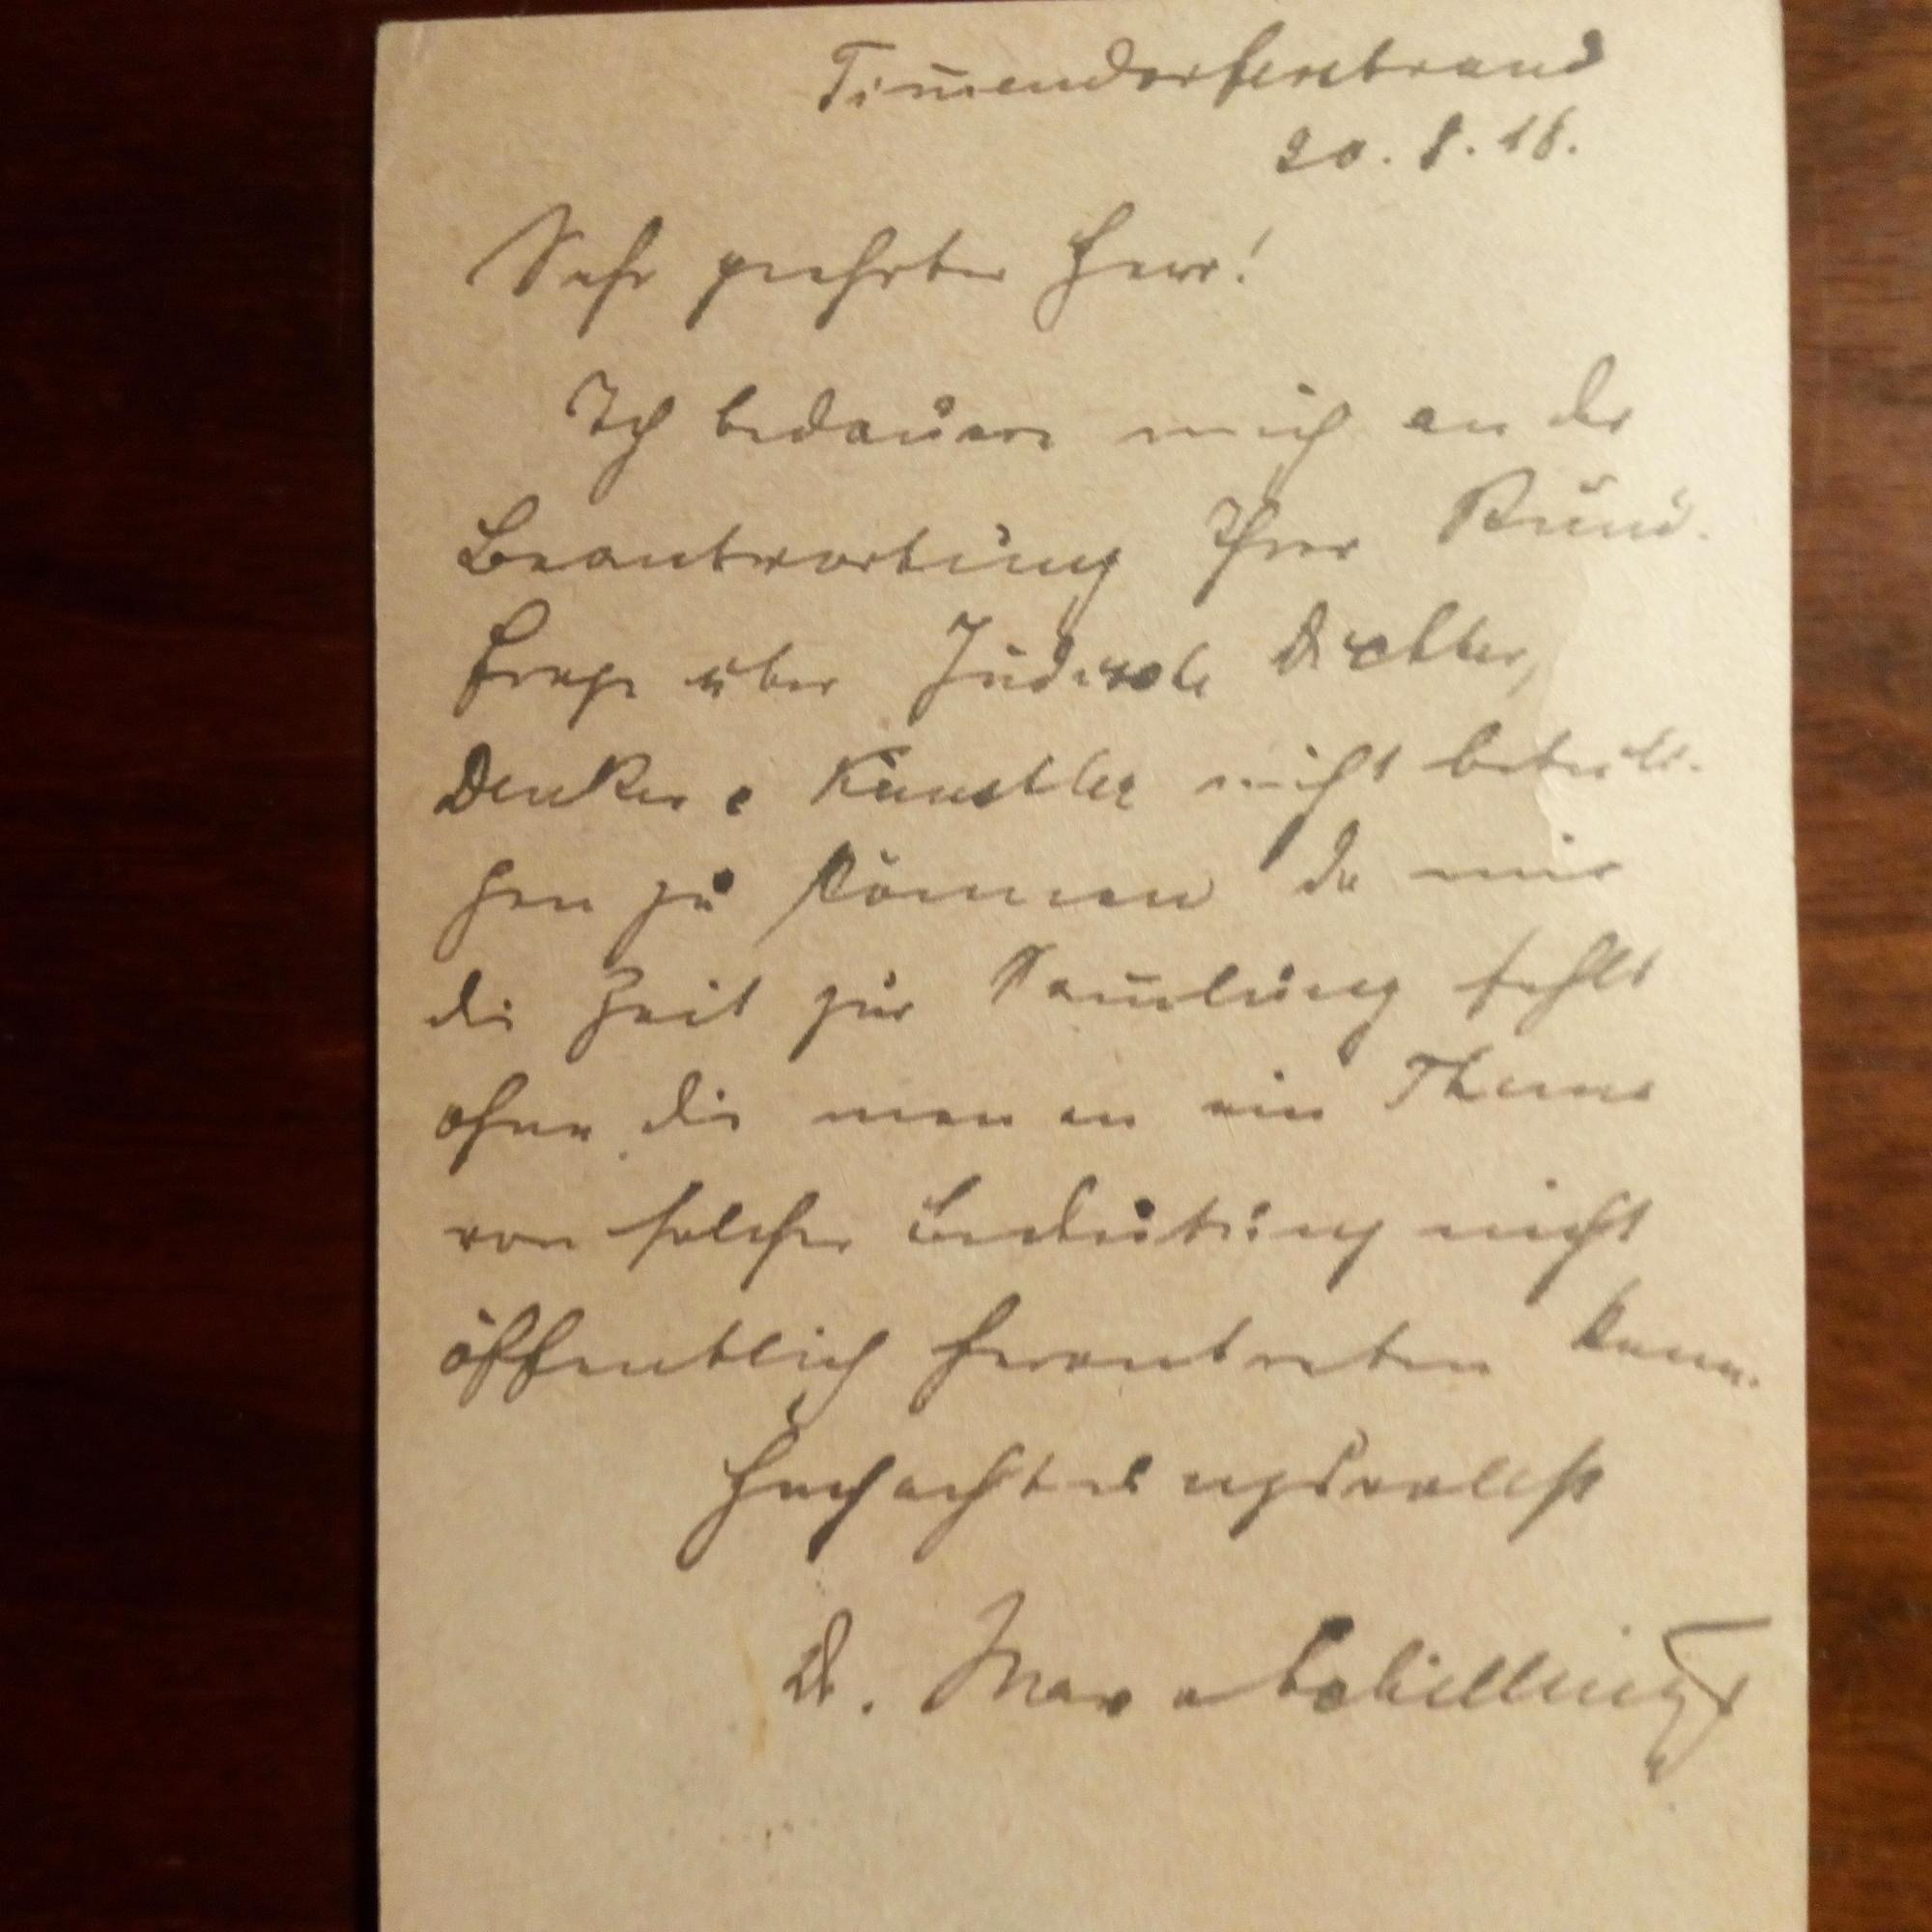 Tim̄endorferstrand
20. 8. 18.
Sehr geehrter Herr!
Ich bedauere mich an der
Beantwortung Ihrer Rund-
frage über Jüdische Dichter,
Denker & Künstler nicht beteili-
gen zu können da mir
die Zeit zur Sam̄lung fehlt
ohne die man an ein Thema
von solcher Bedeutung nicht
öffentlich herantreten kann.
Hochachtungsvollst
Dr. Max v Schillings